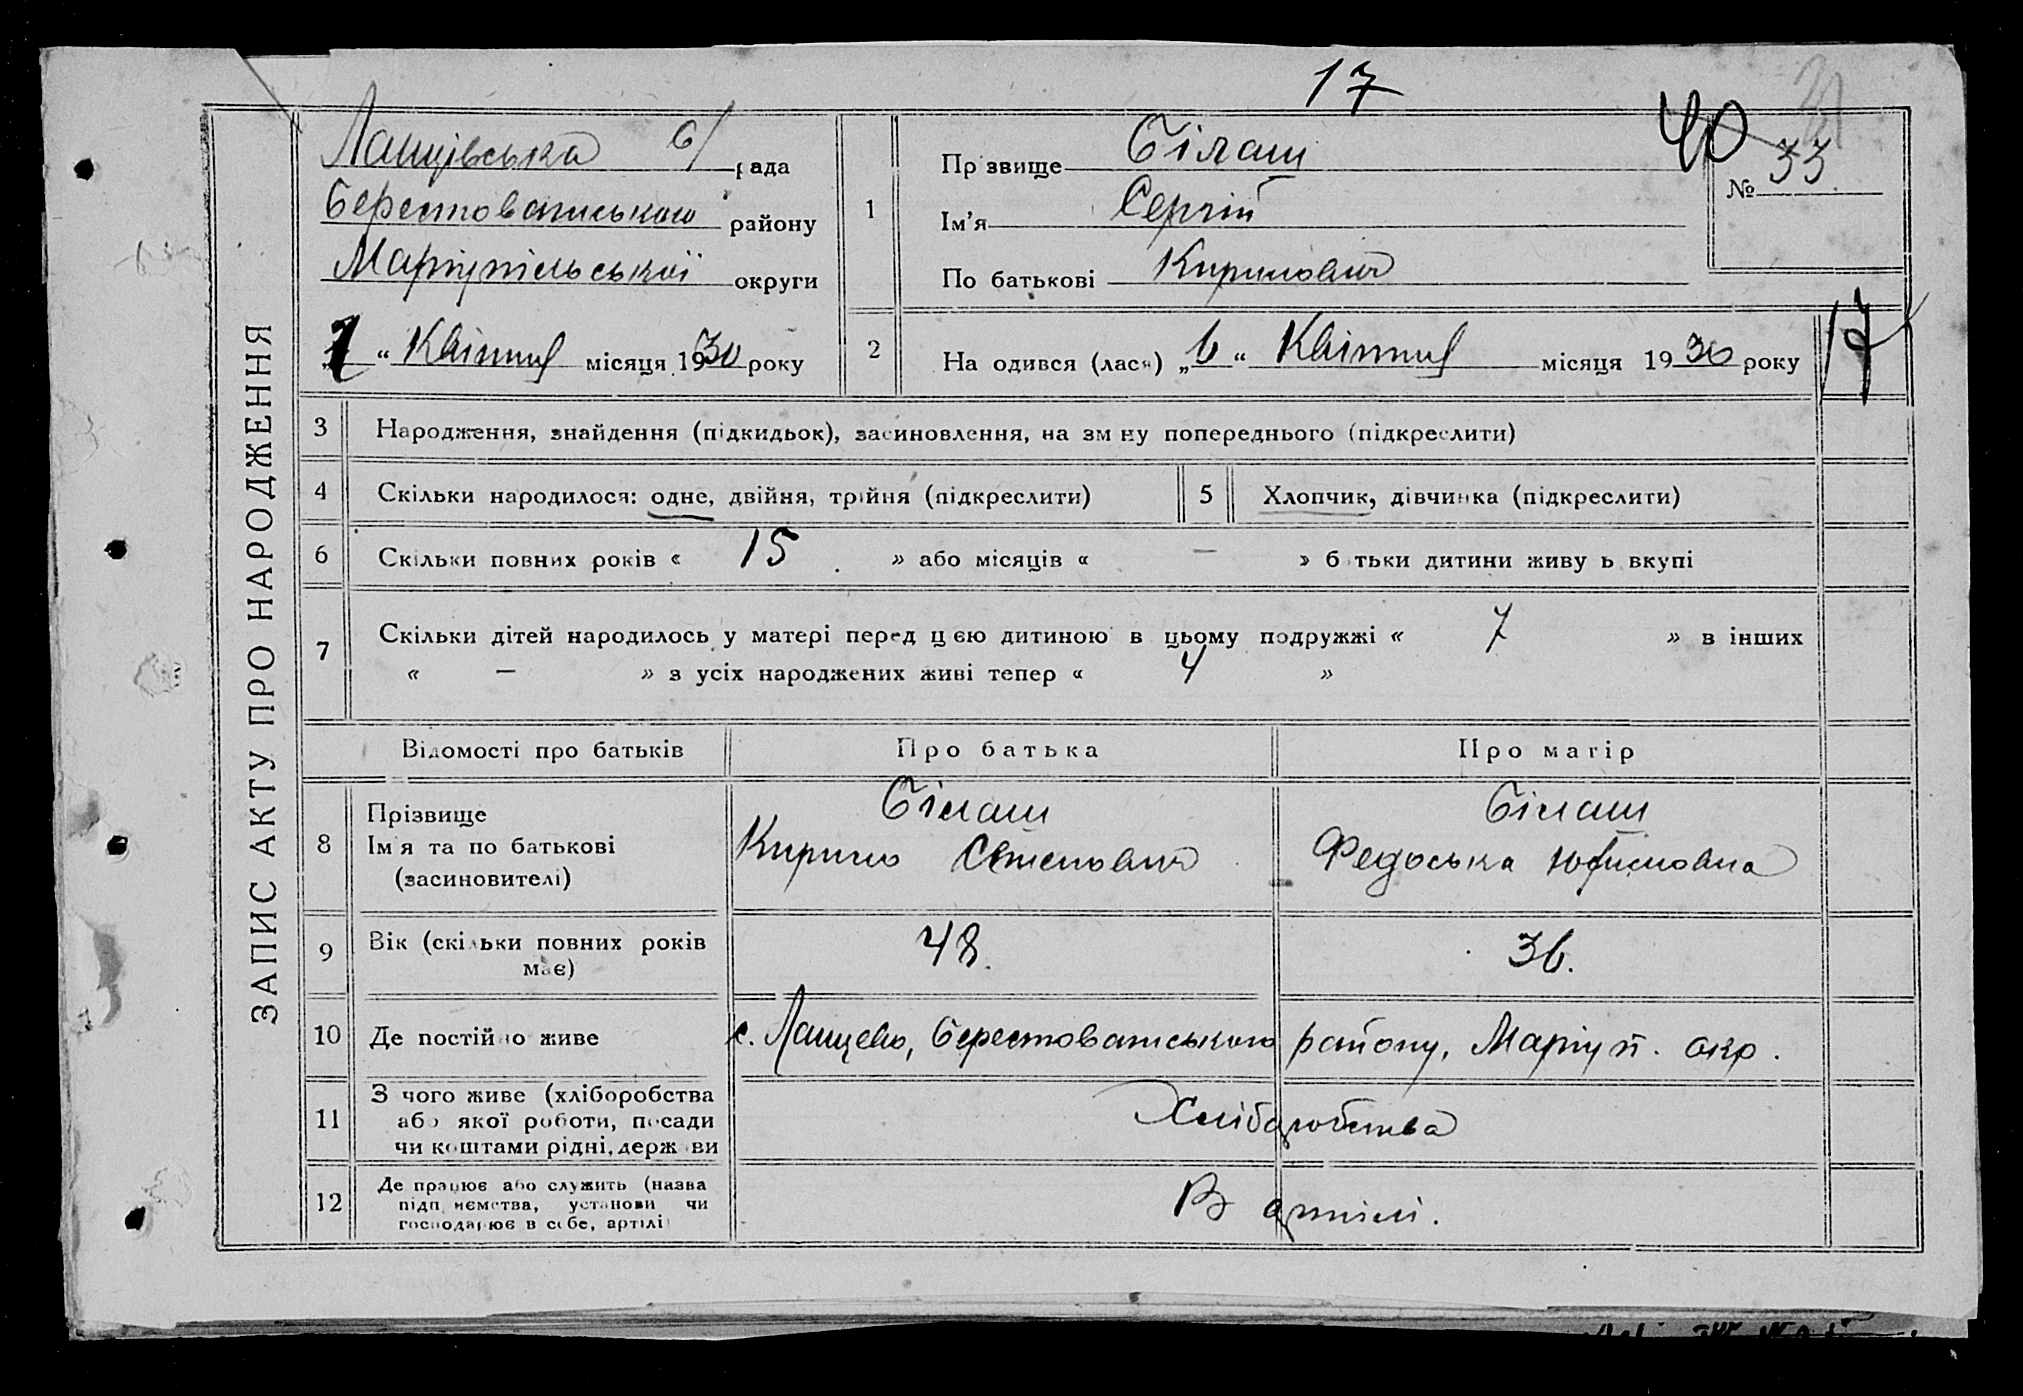 17
40
ЗАПИС АКТУ ПРО НАРОДЖЕННЯ
Лащівська с/рада
Берестоватського району
Маріупільської округи
„7“ Квітня місяця 1930 року
1
Прізвище Білаш
Ім'я Сергій
По батькові Кирилович
№ 33
2
Народився (лася) „6“ Квітня місяця 1930 року
17
3 Народження, знайдення (підкидьок), засиновлення, на зміну попереднього (підкреслити)
4 Скільки народилося: одне, двійня, трійня (підкреслити)
5 Хлопчик, дівчинка (підкреслити)
6 Скільки повних років « 15 » або місяців « — » батьки дитини живуть вкупі
7 Скільки дітей народилось у матері перед цією дитиною в цьому подружжі « 7 » в інших
« — » з усіх народжених живі тепер « 4 »
Відомості про батьків Про батька Про матір
8 Прізвище
Ім'я та по батькові
(засиновителі)
Білаш
Кирило Степанович
Білаш
Федоська Юхимовна
9 Вік (скільки повних років
має)
48. 36.
10 Де постійно живе с. Лащево, Берестоватського району, Маріуп. окр.
11 З чого живе (хліборобства
або якої роботи, посади
чи коштами рідні, держави
Хліборобства
12 Де працює або служить (назва
підприємства, установи чи
господарює в себе, артілі
В артілі.